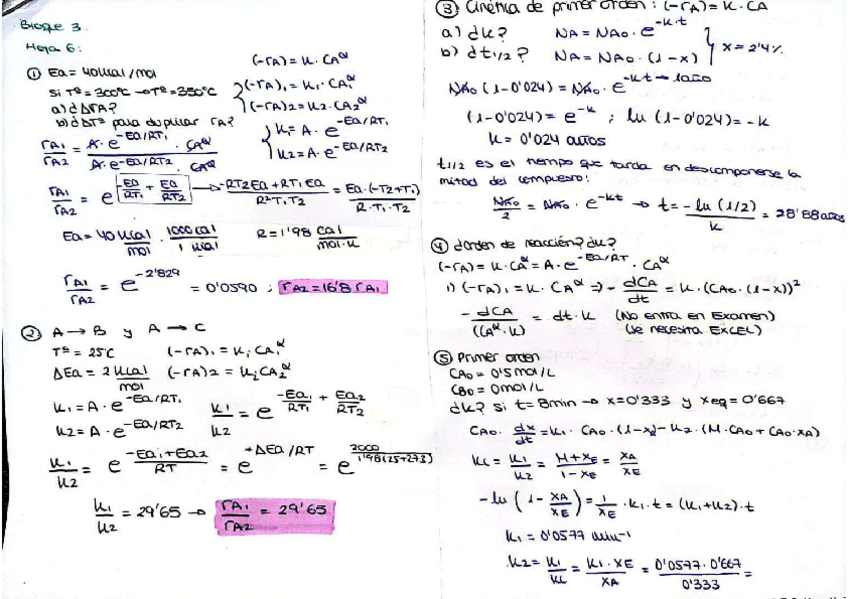 Bloque 3.
Hoja 6:
① Ea = 40 kcal/mol
si Tª = 300ºC → Tª = 350ºC
a) ¿ΔrA?
b) ¿ΔTª para duplicar rA?
(-rA) = K · CA^α
(-rA)₁ = K₁ · CA₁^α
(-rA)₂ = K₂ · CA₂^α
K₁ = A · e^(-Ea/RT₁)
K₂ = A · e^(-Ea/RT₂)
rA₁/rA₂ = (A · e^(-Ea/RT₁) · CA^α)/(A · e^(-Ea/RT₂) · CA^α)
rA₁/rA₂ = e^(-Ea/RT₁ + Ea/RT₂) → (-RT₂Ea + RT₁Ea)/(R²T₁T₂) = Ea · (-T₂+T₁)/(R·T₁·T₂)
Ea = 40 kcal/mol · 1000 cal/1 kcal R = 1'98 cal/mol·K
rA₁/rA₂ = e^(-2'829) = 0'0590 ; rA₂ = 16'8 rA₁
② A → B y A → C
Tª = 25ºC (-rA)₁ = K₁ CA₁^α
ΔEa = 2 kcal/mol (-rA)₂ = K₂ CA₂^α
K₁ = A · e^(-Ea/RT₁)
K₂ = A · e^(-Ea/RT₂)
K₁/K₂ = e^(-Ea₁/RT₁ + Ea₂/RT₂)
K₁/K₂ = e^((-Ea₁+Ea₂)/RT) = e^(+ΔEa/RT) = e^(2000/1'98(25+273))
K₁/K₂ = 29'65 → rA₁/rA₂ = 29'65
③ Cinética de primer orden : (-rA) = K · CA
a) ¿K? NA = NA₀ · e^(-K·t)
b) ¿t1/2? NA = NA₀ · (1-x)
x = 2'4%
NA₀ (1-0'024) = NA₀ · e^(-Kt) → 1 año
(1-0'024) = e^(-K) ; ln (1-0'024) = -K
K = 0'024 años
t1/2 es el tiempo que tarda en descomponerse la
mitad del compuesto:
NA₀/2 = NA₀ · e^(-Kt) → t = -ln (1/2)/K = 28'88 años
④ ¿Orden de reacción? ¿K?
(-rA) = K · CA^α = A · e^(-Ea/RT) · CA^α
1) (-rA)₁ = K · CA^α ⇒ -dCA/dt = K · (CA₀ · (1-x))²
-dCA/(CA^α · K) = dt · K (No entra en Examen)
(Se necesita EXCEL)
⑤ Primer orden
CA₀ = 0'5 mol/L
CB₀ = 0 mol/L
¿K? si t = 8 min → x = 0'333 y xeq = 0'667
CA₀ · dx/dt = K₁ · CA₀ · (1-x) - K₂ · (M·CA₀ + CA₀·xA)
Kc = K₁/K₂ = (M+xE)/(1-xE) = xA/xE
-ln (1 - xA/xE) = 1/xE · K₁ · t = (K₁+K₂) · t
K₁ = 0'0577 min⁻¹
K₂ = K₁/Kc = K₁·xE/xA = 0'0577·0'667/0'333 =